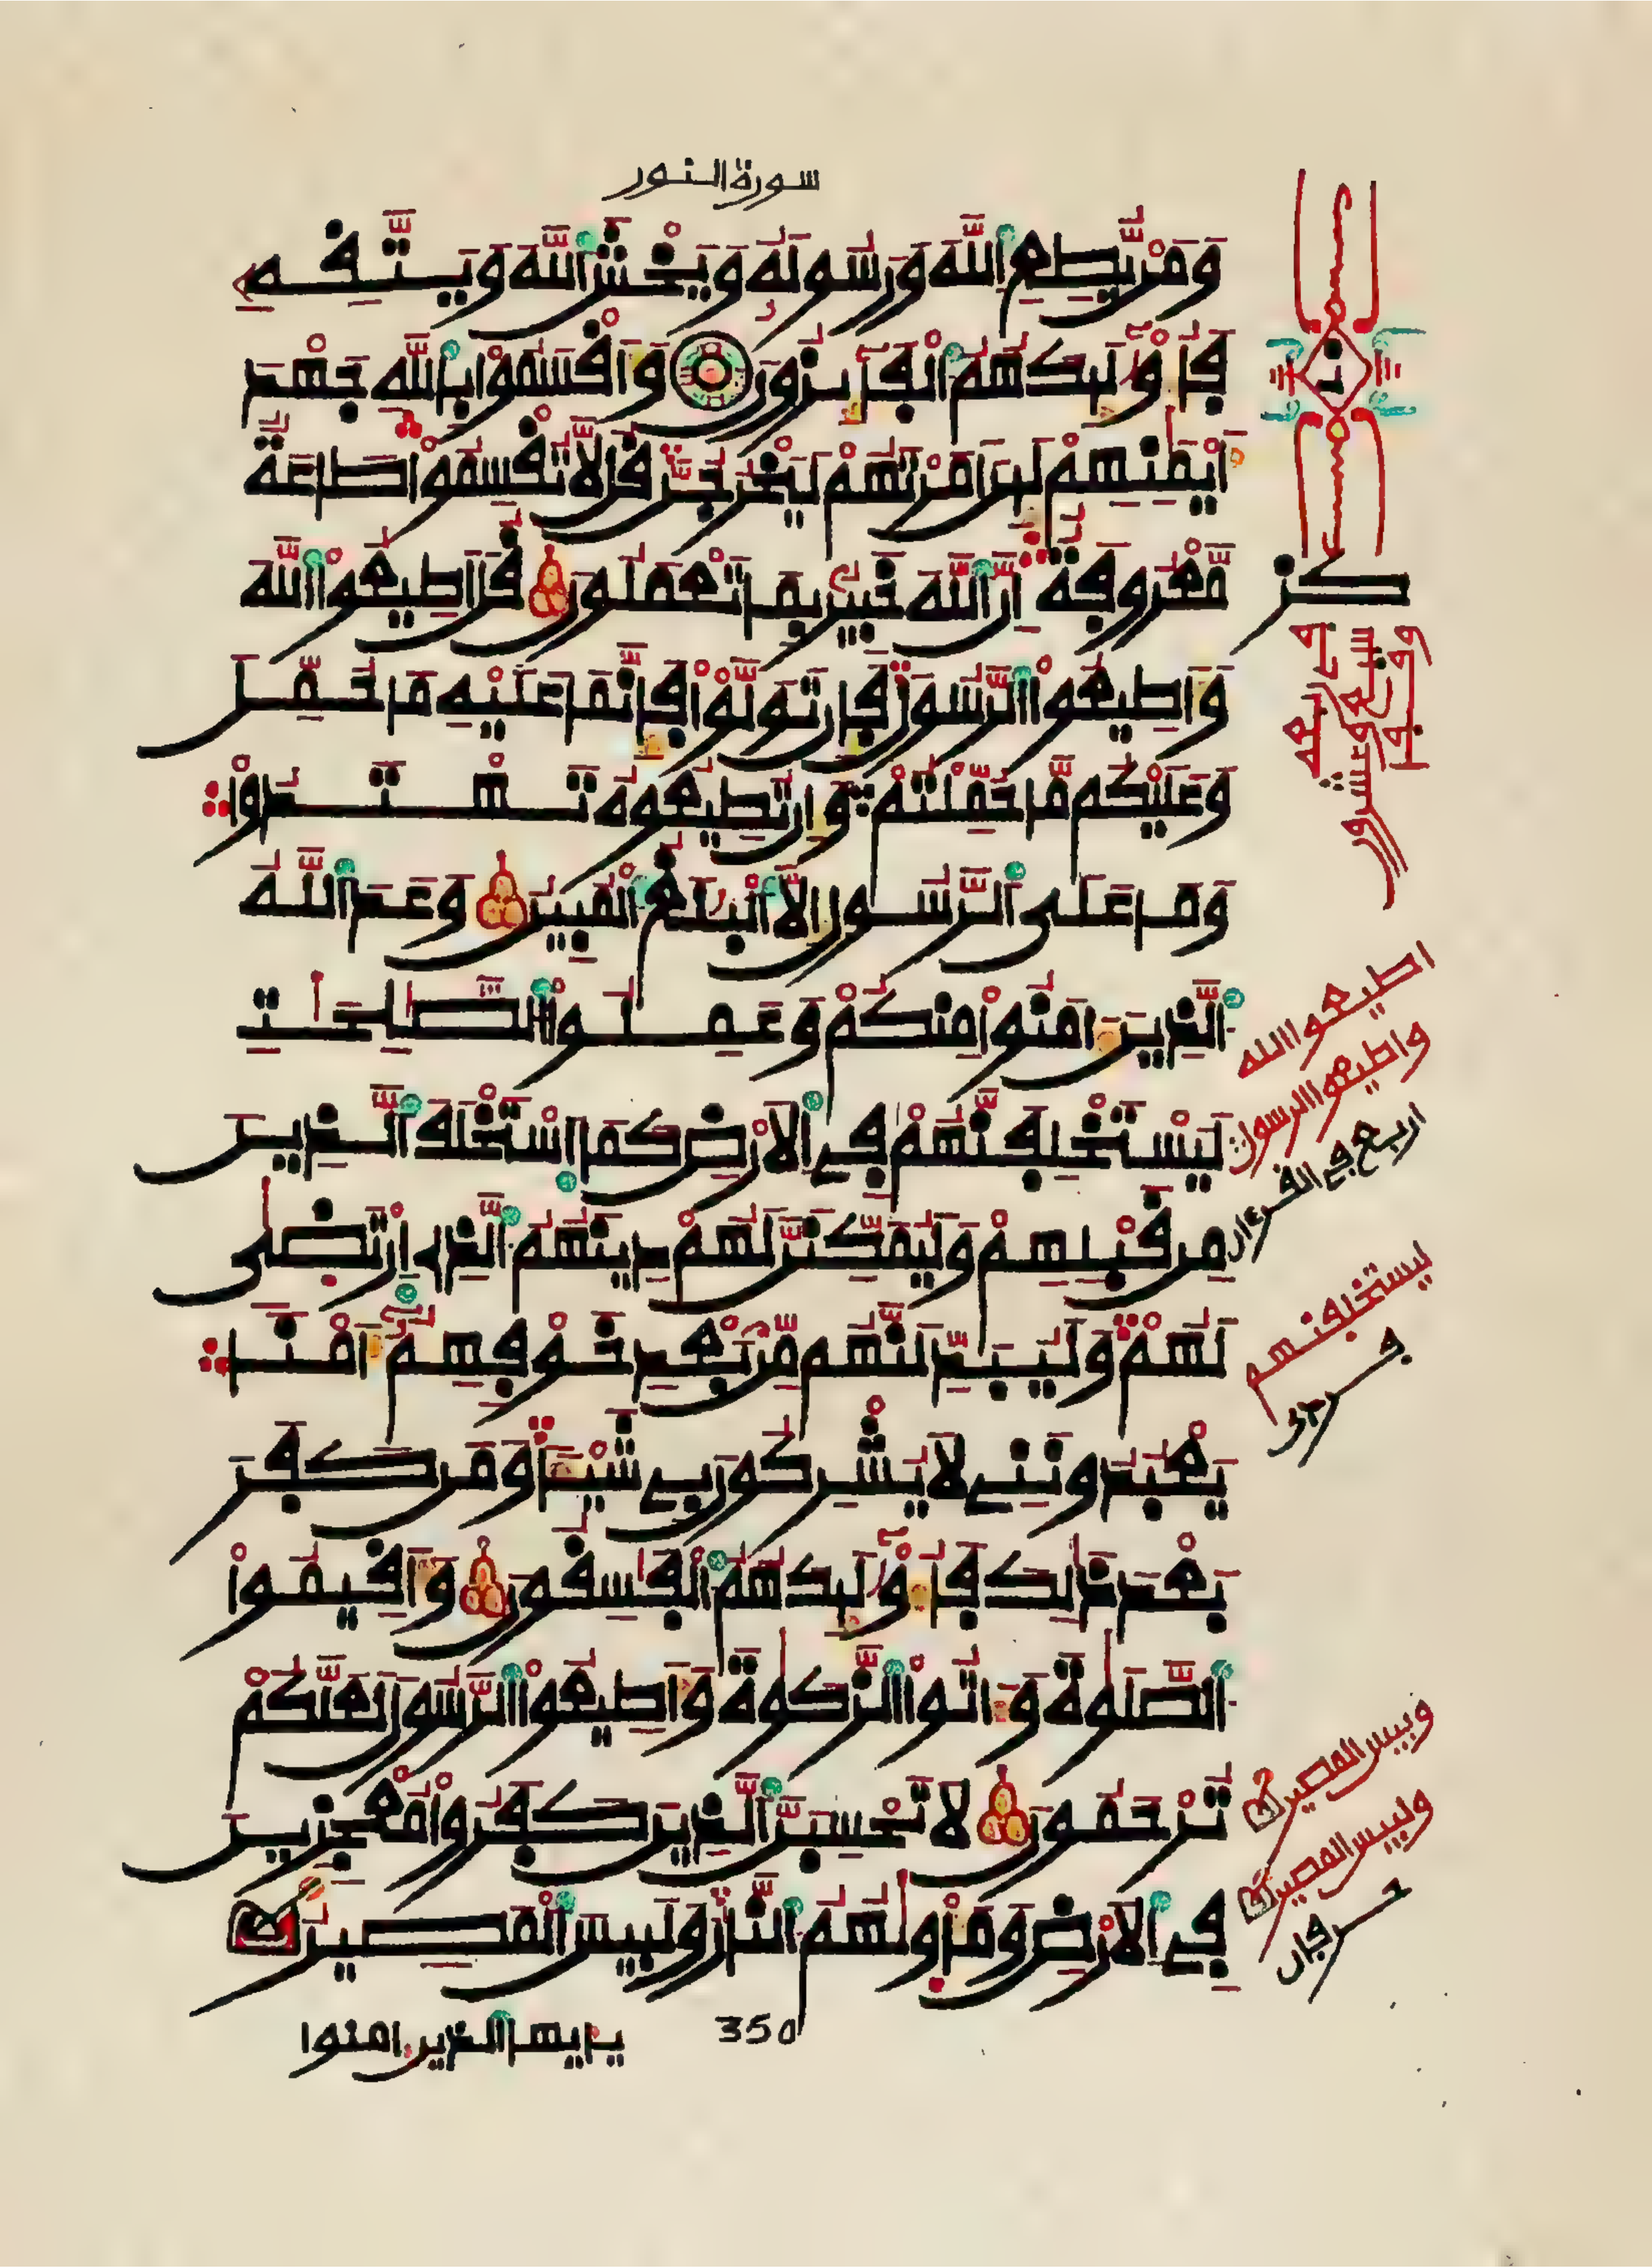 سورة النور
وَمَنْ يُّطِعِ اِللَّهَ وَرَسُولَهُ وَيَخْشَ اَللَّهَ وَيَتَّقِهِ
فَأُوْلَٰٓئِكَ هُمُ اُلْفَآئِزُونَ وَأَقْسَمُواْ بِاللَّهِ جَهْدَ
أَيْمَٰنِهِمْ لَئِنَ اَمَرْتَهُمْ لَيَخْرُجُنَّ قُل لَّا تُقْسِمُواْ طَاعَةٌ
مَّعْرُوفَةٌ اِنَّ اَللَّهَ خَبِيرٌ بِمَا تَعْمَلُونَ قُلَ اَطِيعُواْ اُللَّهَ
وَأَطِيعُواْ اُلرَّسُولَ فَإِن تَوَلَّوْاْ فَإِنَّمَا عَلَيْهِ مَا حُمِّلَ
وَعَلَيْكُم مَّا حُمِّلْتُمْ وَإِن تُطِيعُوهُ تَهْتَدُواْ
وَمَا عَلَى اَلرَّسُولِ إِلَّا اَلْبَلَٰغُ اُلْمُبِينُ وَعَدَ اَللَّهُ
اُلذِينَ ءَامَنُواْ مِنكُمْ وَعَمِلُواْ اُلصَّٰلِحَٰتِ
لَيَسْتَخْلِفَنَّهُمْ فِے اِلَارْضِ كَمَا اَسْتَخْلَفَ اَلذِينَ
مِن قَبْلِهِمْ وَلَيُمَكِّنَنَّ لَهُمْ دِينَهُمُ اُلذِے اِرْتَضَىٰ
لَهُمْ وَلَيُبَدِّلَنَّهُم مِّنۢ بَعْدِ خَوْفِهِمُۥٓ أَمْناً
يَعْبُدُونَنِے لَا يُشْرِكُونَ بِے شَيْئاً وَمَن كَفَرَ
بَعْدَ ذَٰلِكَ فَأُوْلَٰٓئِكَ هُمُ اُلْفَٰسِقُونَ وَأَقِيمُواْ
اُلصَّلَوٰةَ وَءَاتُواْ اُلزَّكَوٰةَ وَأَطِيعُواْ اُلرَّسُولَ لَعَلَّكُمْ
تُرْحَمُونَ لَا تَحْسِبَنَّ اَلذِينَ كَفَرُواْ مُعْجِزِينَ
فِے اِلَارْضِ وَمَأْوَٰىٰهُمُ اُلنَّارُ وَلَبِيسَ اَلْمَصِيرُ
350
يايها الذين امنوا
اطيعوا الله
واطيعوا الرسول
اربع في القرءان
ليستخلفنهم
وبيس المصير
ولبيس المصير
حرفان